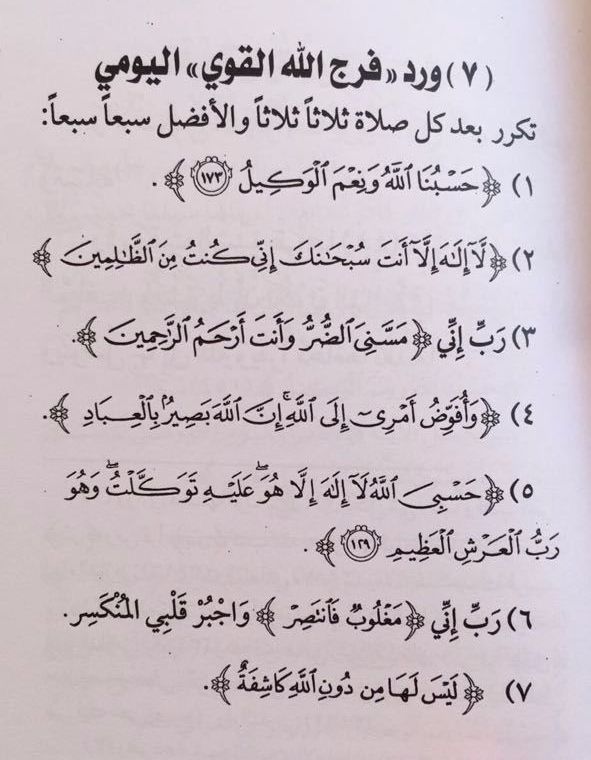 (٧) ورد «فرج الله القوي» اليومي
تكرر بعد كل صلاة ثلاثاً ثلاثاً والأفضل سبعاً سبعاً:
١) ﴿حَسْبُنَا ٱللَّهُ وَنِعْمَ ٱلْوَكِيلُ ١٧٣﴾.
٢) ﴿لَّآ إِلَٰهَ إِلَّآ أَنتَ سُبْحَٰنَكَ إِنِّي كُنتُ مِنَ ٱلظَّٰلِمِينَ﴾
٣) رَبِّ إِنِّي ﴿مَسَّنِيَ ٱلضُّرُّ وَأَنتَ أَرْحَمُ ٱلرَّٰحِمِينَ﴾.
٤) ﴿وَأُفَوِّضُ أَمْرِيٓ إِلَى ٱللَّهِۚ إِنَّ ٱللَّهَ بَصِيرُۢ بِٱلْعِبَادِ﴾.
٥) ﴿حَسْبِيَ ٱللَّهُ لَآ إِلَٰهَ إِلَّا هُوَۖ عَلَيْهِ تَوَكَّلْتُۖ وَهُوَ
رَبُّ ٱلْعَرْشِ ٱلْعَظِيمِ ١٢٩﴾.
٦) رَبِّ إِنِّي ﴿مَغْلُوبٌ فَٱنتَصِرْ﴾ وَاجْبُرْ قَلْبِي المُنْكَسِر.
٧) ﴿لَيْسَ لَهَا مِن دُونِ ٱللَّهِ كَاشِفَةٌ﴾.